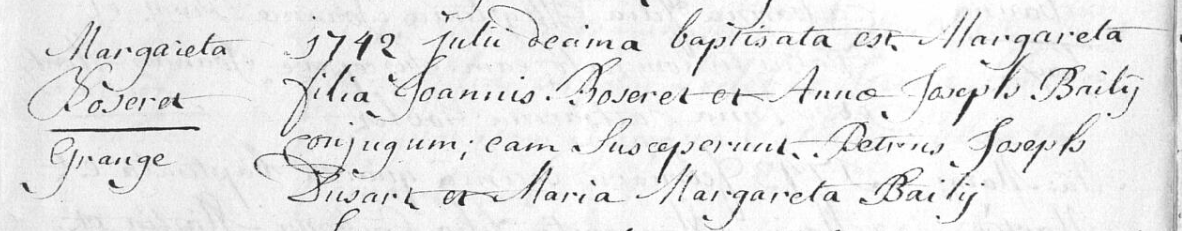 Margareta
Boseret
Grange
1742 julii decima baptisata est Margareta
filia Joannis Boseret et Annæ Joseph Bailij
conjugum; eam Susceperunt Petrus Joseph
Dusart et Maria Margareta Bailij